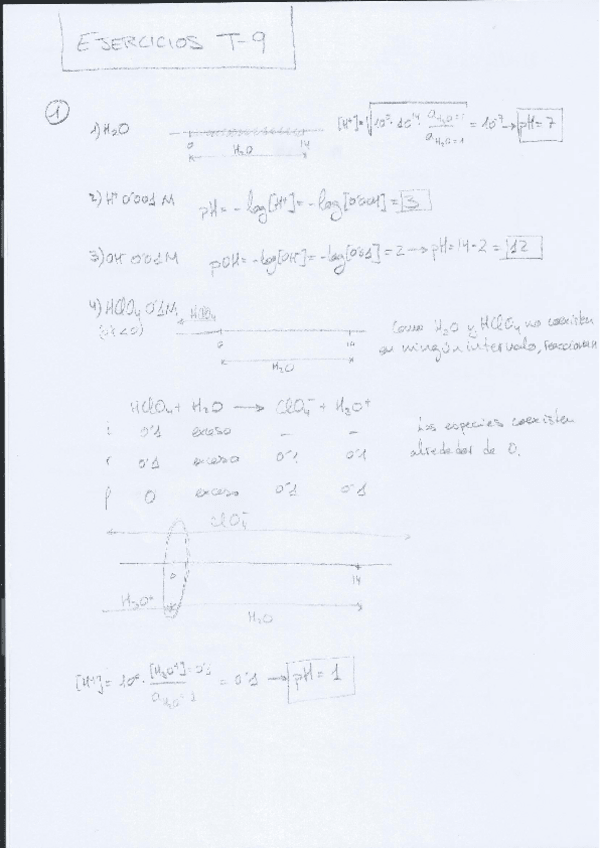 EJERCICIOS T-9
①
1) H₂O
0 14
H₂O
[H⁺]=√10⁰·10⁻¹⁴· a H₂O=1 / a H₂O=1 = 10⁻⁷ → pH=7
2) H⁺ 0'001M pH= -log[H⁺]= -log[0'001]= 3
3) OH⁻ 0'01M pOH= -log[OH⁻]= -log[0'01]= 2 → pH=14-2 = 12
4) HClO₄ 0'1M
HClO₄
0 14
H₂O
Como H₂O y HClO₄ no coexisten
en ningún intervalo, reaccionan
HClO₄ + H₂O → ClO₄⁻ + H₃O⁺
i 0'1 exceso - -
r 0'1 exceso 0'1 0'1
f 0 exceso 0'1 0'1
Las especies coexisten
alrededor de 0.
ClO₄⁻
0 14
H₃O⁺
H₂O
[H⁺]= 10⁰· [H₃O⁺]=0'1 / a H₂O=1 = 0'1 → pH = 1